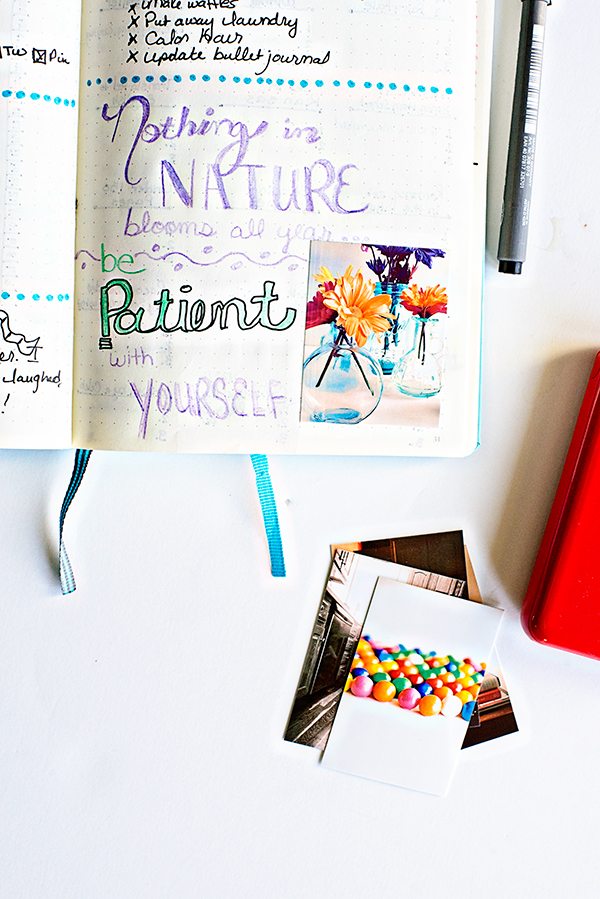 x Make waffles
x Put away laundry
x Color Hair
x update bullet journal
Tw ☒ Pin
Nothing in
NATURE
blooms all year...
be
Patient
with
YOURSELF
laughed,
!